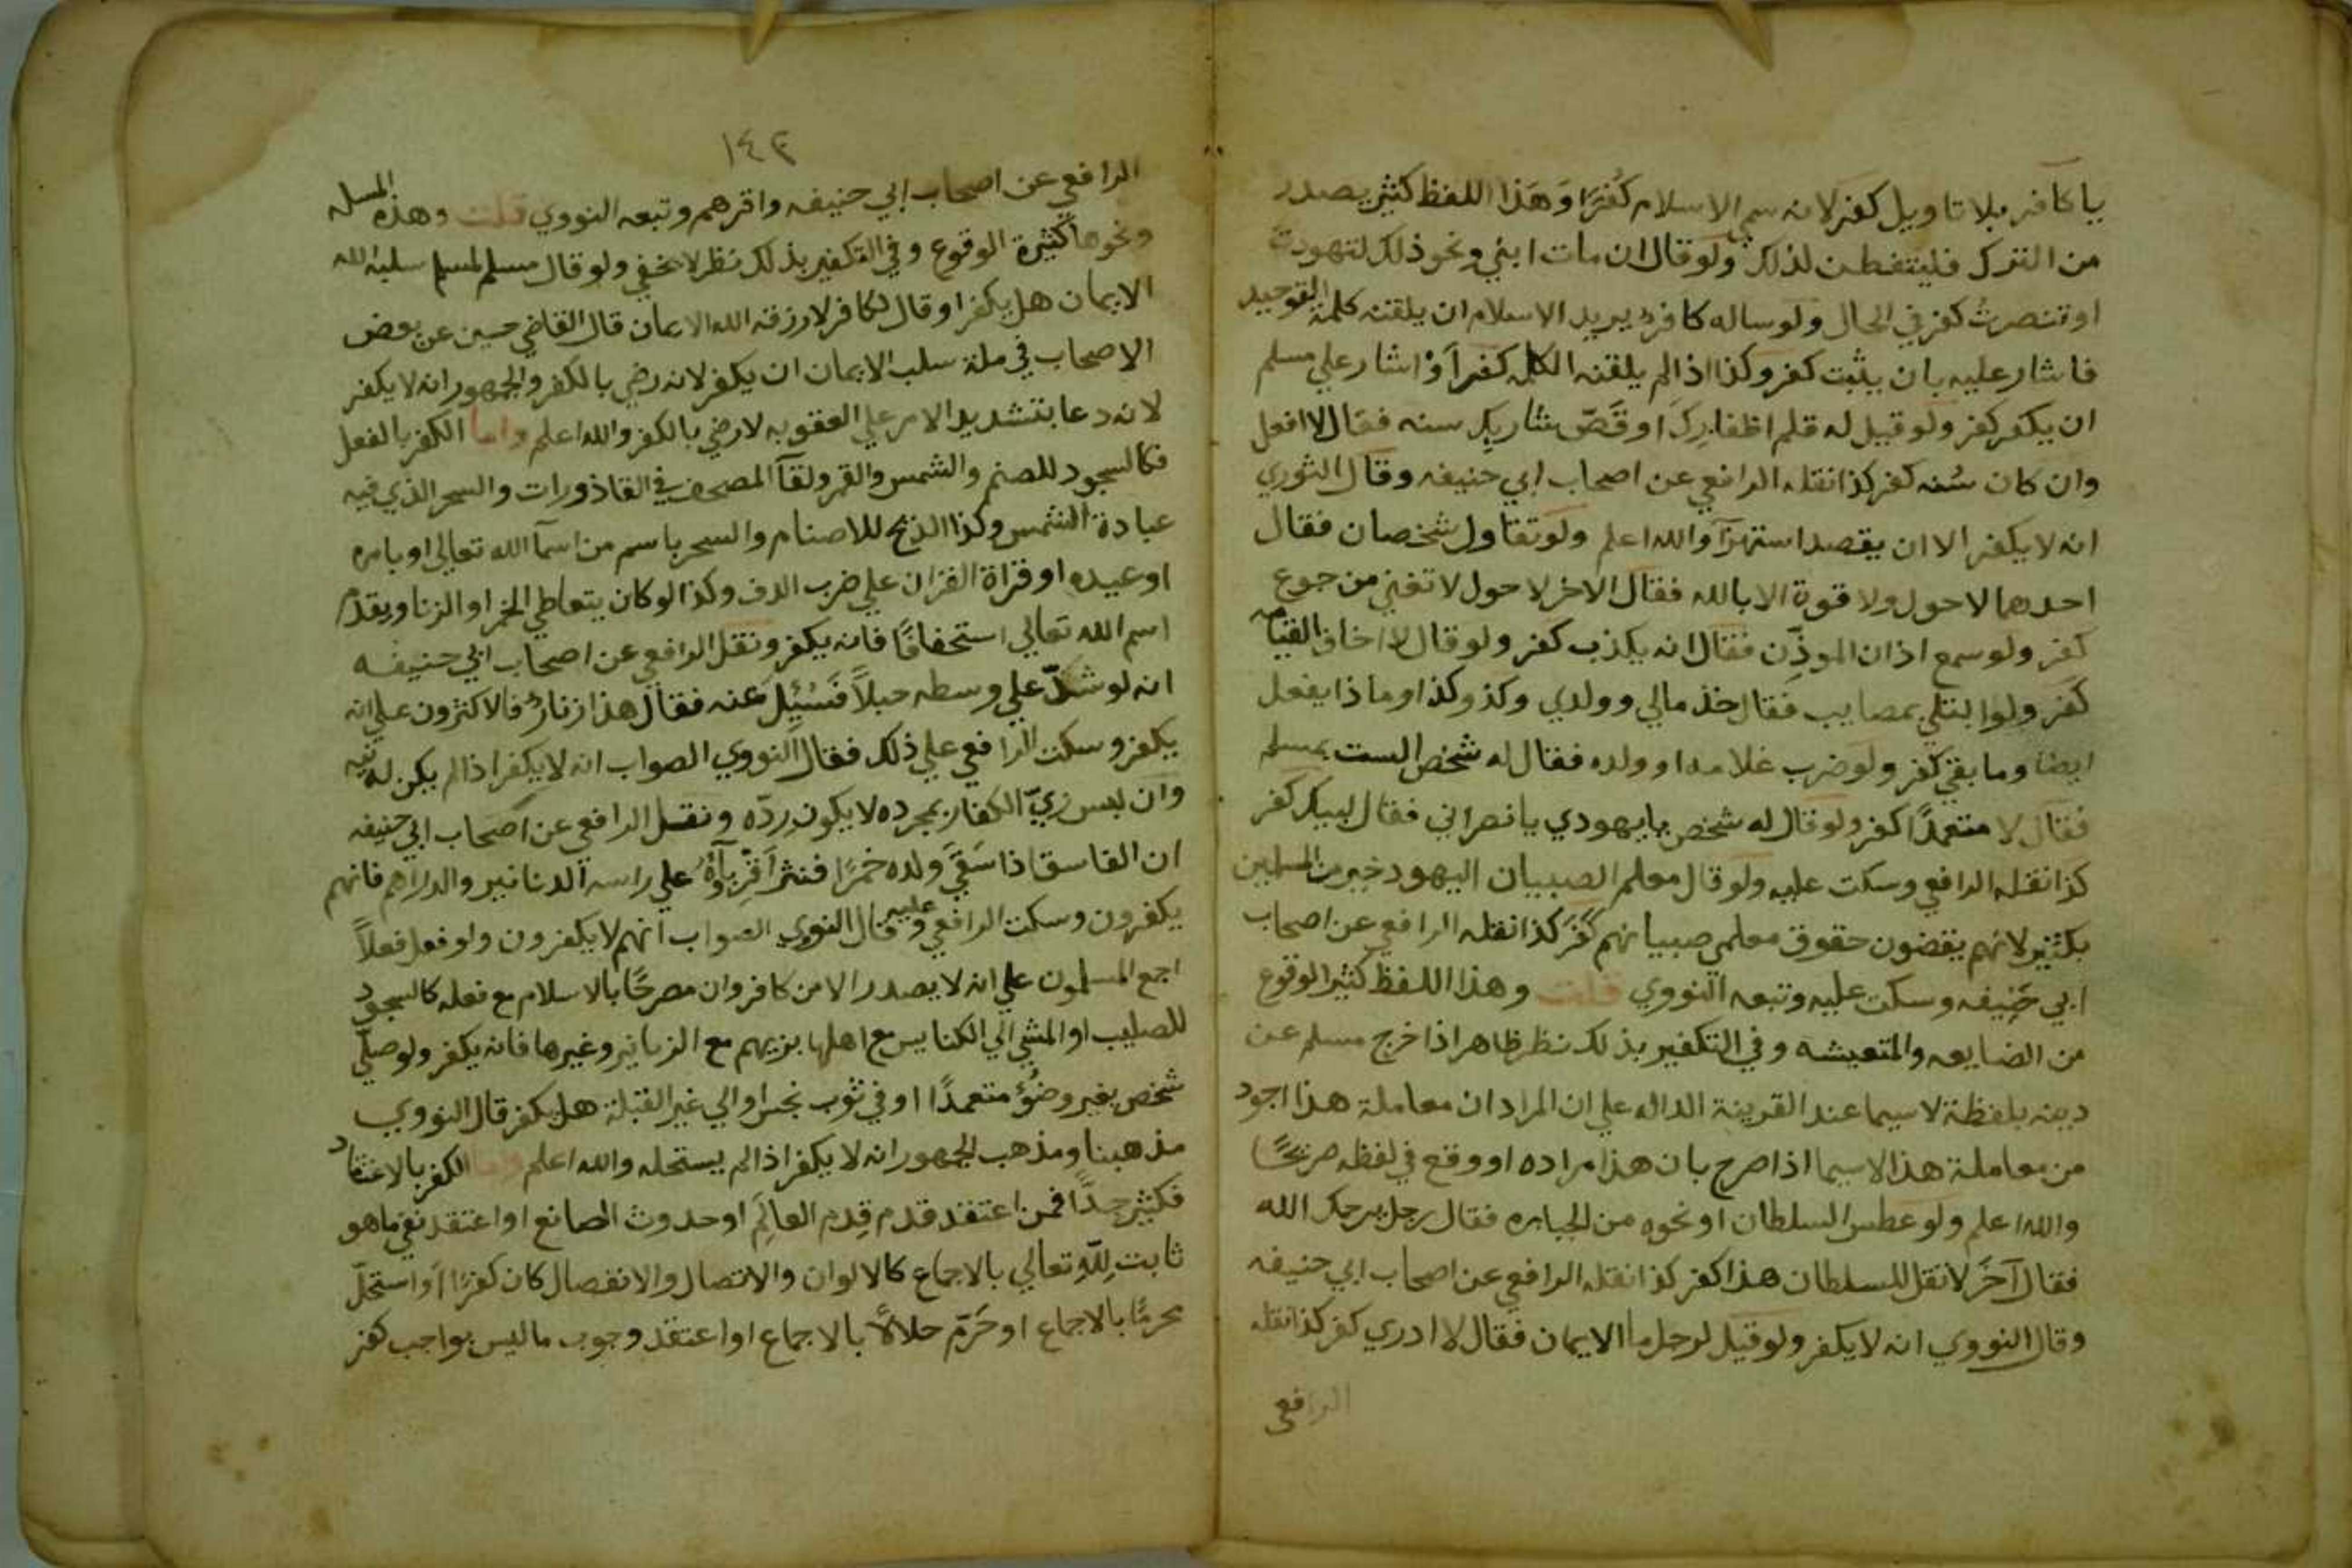 يا كافر بلا تاويل كفر لانه سمى الاسلام كُفرًا وَهَذا اللفظ كثير يصدر
من الترك فليتفطن لذلك ولو قال ان مات ابني ونحو ذلك لتهودت
او تنصرتُ كفر في الحال ولو ساله كافرٌ يريد الاسلام ان يلقنه كلمة التوحيد
فاشار عليه بان يثبت كفر وكذا اذا لم يلقنه الكلمه كفر اَوْ اشار علي مسلم
ان يكفر كفر ولو قيل له قلم اظفارِكَ او قَصّ شاربك سنه فقال لا افعل
وان كان سُنه كفر كذا نقله الرافعي عن اصحاب ابي حنيفه وقال النووي
انه لا يكفر الا ان يقصد استهزآ والله اعلم ولو تقاول شخصان فقال
احدهما لا حول ولا قوة الا بالله فقال الاخر لا حول لا تغني من جوع
كفر ولو سمع اذان الموذن فقال انه يكذب كفر ولو قال لا اخاف القيامه
كفر ولو ابتلي بمصايب فقال خذ مالي وولدي وكذ وكذا وماذا يفعل
ايضا وما بقي كفر ولو ضرب غلامه او ولده فقال له شخص الست بمسلم
فقال لا متعمدًا كفر ولو قال له شخص يا يهودي يا نصراني فقال لبيك كفر
كذا نقله الرافعي وسكت عليه ولو قال معلم الصبيان اليهود خير من المسلمين
بكثير لانهم يقضون حقوق معلمي صبيانهم كَفَرَ كذا نقله الرافعي عن اصحاب
ابي حَنِيفه وسكت عليه وتبعه النووي قلت وهذا اللفظ كثير الوقوع
من الضايعه والمتعيشه وفي التكفير بذلك نظر ظاهر اذا خرج مسلم عن
دينه بلفظة لا سيما عند القرينة الداله علي ان المراد ان معاملة هذا اجود
من معاملة هذا لا سيما اذا صرح بان هذا مراده او وقع في لفظه صريحًا
والله اعلم ولو عطس السلطان او نحوه من الجبابره فقال رجل يرحمك الله
فقال آخَر لا تقل للسلطان هذا كفر كذا نقله الرافعي عن اصحاب ابي حنيفه
وقال النووي انه لا يكفر ولو قيل لرجل ما الايمان فقال لا ادري كفر كذا نقله
الرافعي
١٤٢
الرافعي عن اصحاب ابي حنيفه واقرهم وتبعه النووي قلت وهذه المسله
ونحوها كثيرة الوقوع وفي التكفير بذلك نظر لا يخفي ولو قال مسلم لمسلم سلبه الله
الايمان هل يكفر او قال لكافر لا رزقه الله الايمان قال القاضي حسين عن بعض
الاصحاب في سلب الايمان ان يكفر لانه رضي بالكفر والجمهور انه لا يكفر
لانه دعا بتشديد الامر علي العقوبه لا رضي بالكفر والله اعلم واما الكفر بالفعل
فكالسجود للصنم والشمس والقمر ولقآ المصحف في القاذورات والسحر الذي فيه
عبادة الشمس وكذا الذبح للاصنام والسحر باسم من اسمآ الله تعالي او بامره
او عيده او قراة القران علي ضرب الدف وكذا لو كان يتعاطي الخمر او الزنا ويقدّم
اسم الله تعالي استخفافًا فانه يكفر ونقل الرافعي عن اصحاب ابي حنيفه
انه لو شدّ علي وسطه حبلاً فَسُئِلَ عنه فقال هذا زنارٌ فالاكثرون علي انه
يكفر وسكت الرافعي علي ذلك فقال النووي الصواب انه لا يكفر اذا لم يكن له نيه
وان لبس زيّ الكفار بمجرده لا يكون رِدّه ونقل الرافعي عن اصحاب ابي حنيفه
ان الفاسق اذا سَقَي ولده خمرًا فنثر اَقْرِبآؤُهُ علي راسه الدنانير والدراهم فانهم
يكفرون وسكت الرافعي عليه وقال النووي الصواب انهم لا يكفرون ولو فعل فعلاً
اجمع المسلمون علي انه لا يصدر الا من كافر وان مصرحًا بالاسلام مع فعله كالسجود
للصليب او المشي الي الكنايس مع اهلها بزيهم مع الزنانير وغيرها فانه يكفر ولو صلّي
شخص بغير وضُوْ متعمدًا او في ثوب نجس او الي غير القبلة هل يكفر قال النووي
مذهبنا ومذهب الجمهور انه لا يكفر اذا لم يستحله والله اعلم واما الكفر بالاعتقاد
فكثير جدًّا فمن اعتقد قدم قِدم العالَم او حدوث الصانع او اعتقد نفي ما هو
ثابت لِلّهِ تعالي بالاجماع كالالوان والاتصال والانفصال كان كفرًا اَو استحلّ
محرمًا بالاجماع او حَرّم حلالاً بالاجماع او اعتقد وجوب ما ليس بواجب كفر